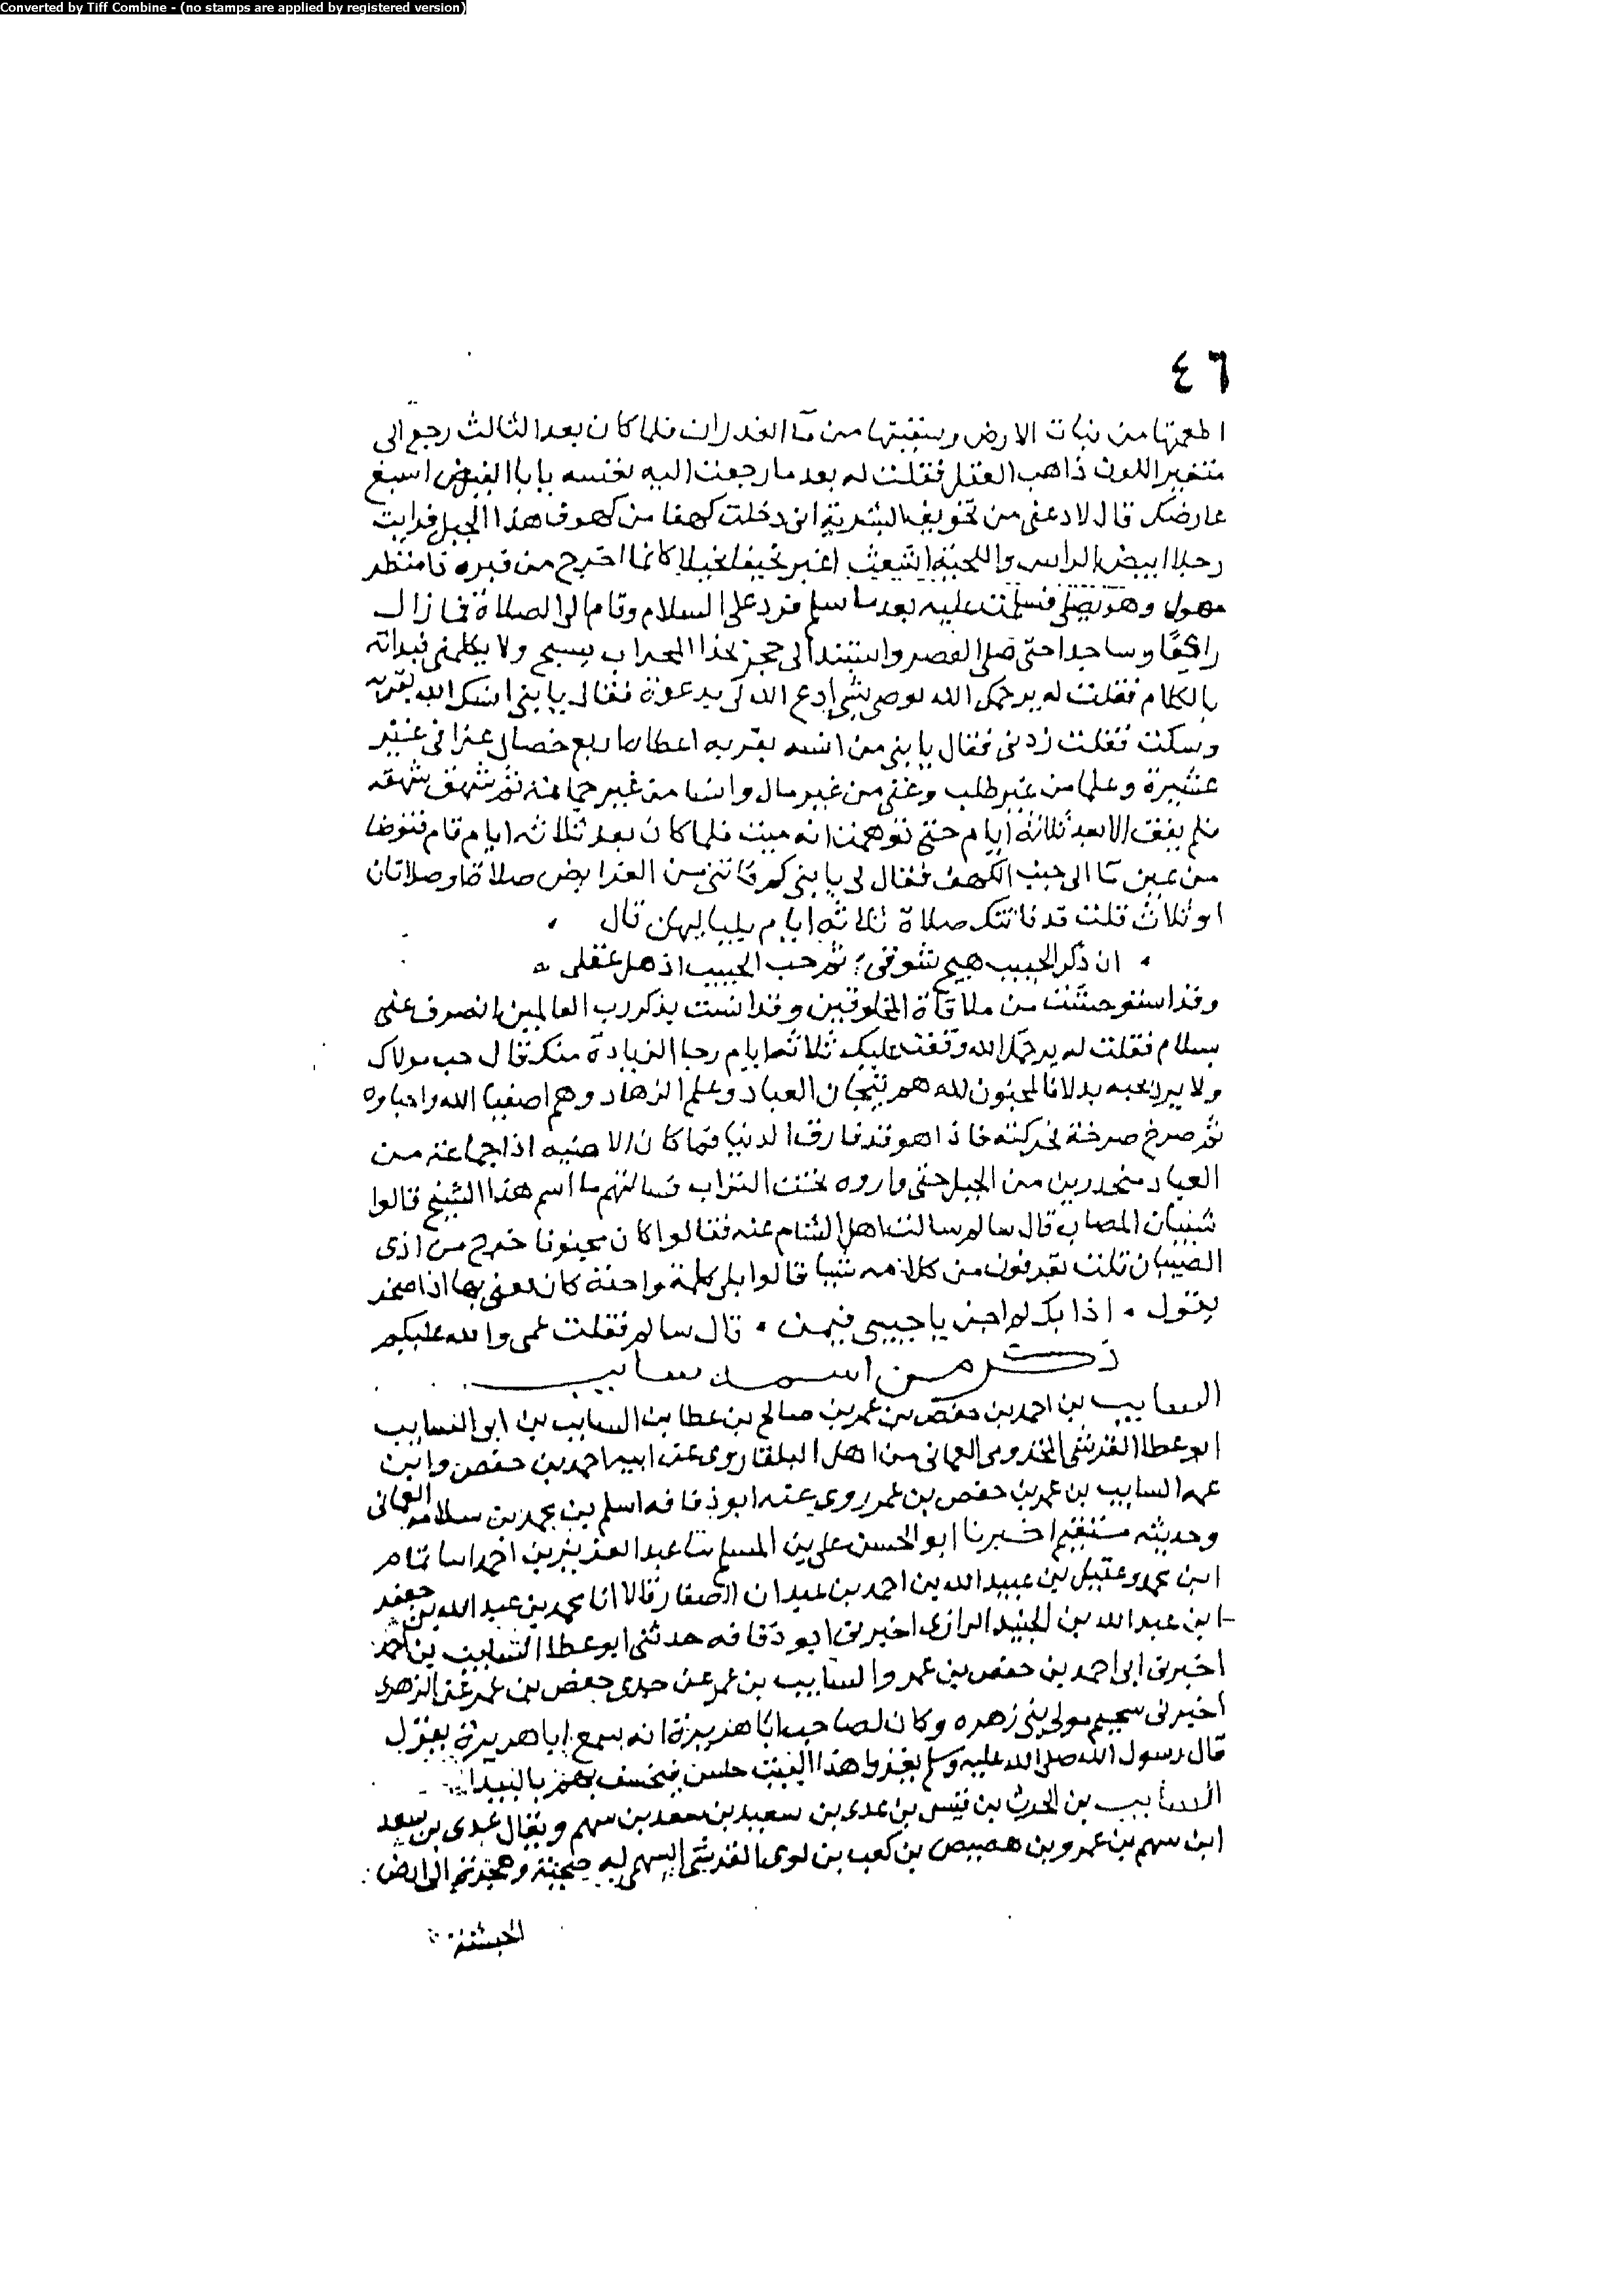 Converted by Tiff Combine - (no stamps are applied by registered version)
٤٦
اطعمتها من نبات الارض وسقيتها من مآ الغدران فلما كان بعد الثالث رجع الى
متغير اللون ذاهب العقل فقلت له بعد ما رجعت اليه نفسه يابا الفيض اسبع
عارضك قال لا دعنى من تخويف البشرية انى دخلت كهفا من كهوف هذا الجبل فرايت
رجلا ابيض الراس واللحية اشعث اغبر نحيفا نحيلا كانما اخرج من قبره ذا منظر
مهول وهو يصلى فسلمت عليه بعد ما سلم فرد على السلام وقام الى الصلاة فما زال
راكعًا وساجدا حتى صلى العصر واستند الى حجر بحذا المحراب يسبح ولا يكلمنى فبداته
بالكلام فقلت له يرحمك الله توصى بشى ادع الله لى بدعوة فقال يا بنى انسك الله بقربه
وسكت فقلت زدنى فقال يا بنى من انسه بقربه اعطاه اربع خصال عزا فى غير
عشيرة وعلما من غير طلب وغنى من غير مال وانسا من غير جماعة ثم شهق شهقه
فلم يفق الا بعد ثلاثة ايام حتى توهمت انه ميت فلما كان بعد ثلاثه ايام قام فتوضا
من عين مآ الى جنب الكهف فقال لى يا بنى كم فاتنى من الفرايض صلاة او صلاتان
او ثلاث قلت قد فاتتك صلاة ثلاثه ايام بلياليهن قال
ان ذكر الحبيب هيج شوقى ؛ ثم حب الحبيب اذهل عقلى
وقد استوحشت من ملاقاة المخلوقين وقد انست بذكر رب العالمين انصرف عنى
بسلام فقلت له يرحمك الله وقفت عليك ثلاثه ايام رجا الزيادة منك فقال حب مولاك
ولا يرد بحبه بدلا فالمحبون لله هم تيجان العباد وعلم الزهاد وهم اصفيا الله واحباوه
ثم صرخ صرخة فحركته فاذا هو قد فارق الدنيا فما كان الا هنيه اذا جماعة من
العباد منحدرين من الجبل حتى واروه تحت التراب فسالتهم ما اسم هذا الشيخ قالوا
شيبان المصاب قال سالم سالت اهل الشام عنه فقالوا كان مجنونا خرج من اذى
الصبيان قلت تعرفون من كلامه شيا قالوا بلى كلمة واحدة كان يعنى بها اذا ضجر
يقول اذا بك لم اجن يا حبيبى فبمن قال سالم فقلت عمى والله عليكم
ذكر من اسمه سايب
السايب بن احمد بن حفص بن عمر بن صالح بن عطا بن السايب بن ابى السايب
ابو عطا القرشى المخزومى العمانى من اهل البلقا روى عن ابيه احمد بن حفص وابن
عمه السايب بن عمر بن حفص بن عمر روى عنه ابو ذفافه اسلم بن محمد بن سلامه العمانى
وحديثه مستقيم اخبرنا ابو الحسن على بن المسلم ثنا عبد العزيز بن احمد انا تمام
ابن محمد وعقيل بن عبيد الله بن احمد بن عبدان الصفار قالا انا محمد بن عبد الله بن جعفر
ابن عبد الله بن الجنيد الرازى اخبرنى ابو ذفافه حدثنى ابو عطا السايب بن احمد
اخبرنى ابى احمد بن حفص بن عمر والسايب بن عمر عن جدى حفص بن عمر عن الزهرى
اخبرنى سحيم مولى بنى زهره وكان لصاحب ابا هريرة انه سمع ابا هريرة يقول
قال رسول الله صلى الله عليه وسلم يغزوا هذا البيت جيش فيخسف بهم بالبيدا
السايب بن الحرث بن قيس بن عدى بن سعيد بن سعد بن سهم ويقال عدى بن سعد
ابن سهم بن عمرو بن هصيص بن كعب بن لوى القرشى السهمى له صحبة وهجرته الى ارض
الحبشة